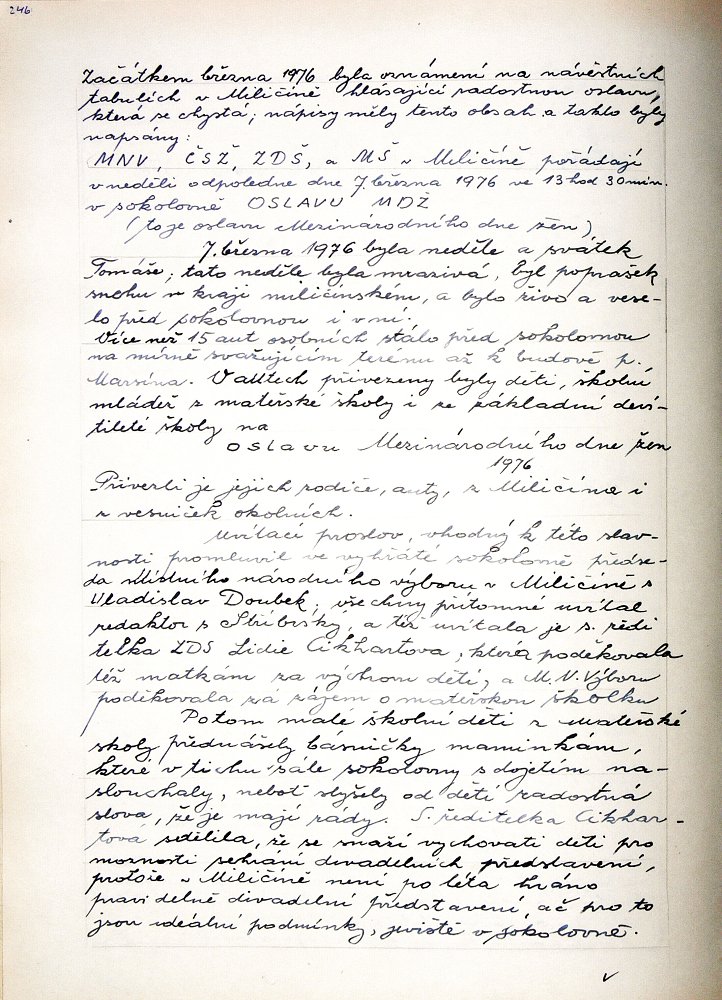 246
Začátkem března 1976 byla oznámení na návěstních
tabulích v Miličíně hlásající radostnou oslavu,
která se chystá; nápisy měly tento obsah a takto byly
napsány:
MNV, ČSŽ, ZDŠ, a MŠ v Miličíně pořádají
v neděli odpoledne dne 7. března 1976 ve 13 hod 30 min.
v sokolovně OSLAVU MDŽ
(to je oslavu Mezinárodního dne žen)
7. března 1976 byla neděle a svátek
Tomáše; tato neděle byla mrazivá, byl poprašek
sněhu v kraji miličínském, a bylo živo a vese-
lo před sokolovnou i v ní.
Více než 15 aut osobních stálo před sokolovnou
na mírně svažujícím terénu až k budově p.
Marsína. V autech přivezeny byly děti, školní
mládež z mateřské školy i ze základní deví-
tileté školy na
oslavu Mezinárodního dne žen
1976
Přivezli je jejich rodiče, auty, z Miličína i
z vesniček okolních.
Uvítací proslov, vhodný k této slav-
nosti promluvil ve vyhřáté sokolovně předse-
da Místního národního výboru v Miličíně s
Vladislav Doubek; všechny přítomné uvítal
redaktor s Stříbrský, a též uvítala je s. ředi
telka ZDŠ Lidie Cikhartova, která poděkovala
též matkám za výchovu dětí, a M. N. Výboru
poděkovala za zájem o mateřskou školku
Potom malé školní děti z mateřské
školy přednášely básničky maminkám,
které v tichu sále sokolovny s dojetím na-
slouchaly, neboť slyšely od dětí radostná
slova, že je mají rády. S. ředitelka Cikhar-
tová sdělila, že se snaží vychovati děti pro
možnosti sehrání divadelních představení,
protože v Miličíně není po léta hráno
pravidelně divadelní představení, ač pro to
jsou ideální podmínky, jeviště v sokolovně.